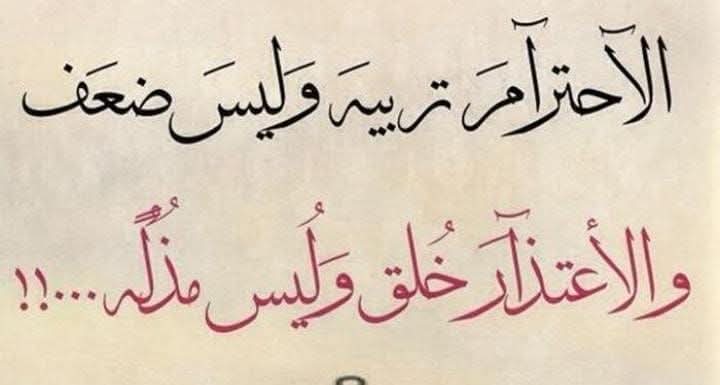 الآحترآمَ تربيهَ وَليسَ ضعَف
والأعتذآرَ خُلق وَلُيس مذُلٌه ...!!